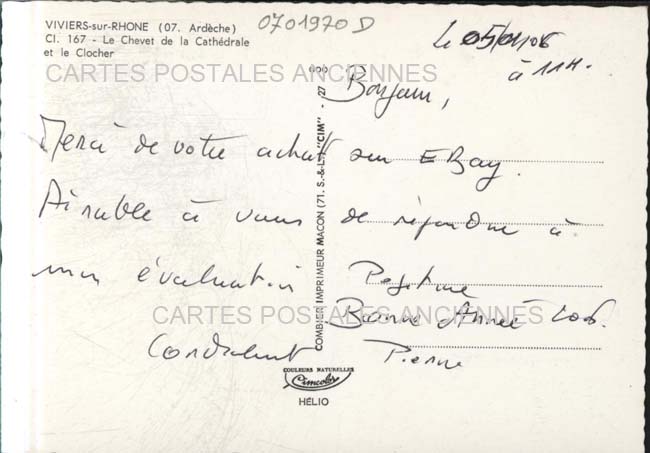 VIVIERS-sur-RHONE (07. Ardèche)
Cl. 167 - Le Chevet de la Cathédrale
et le Clocher
0701970 D
CARTES POSTALES ANCIENNES
Le 05/01/06
à 11H.
Bonjour,
Merci de votre achat sur EBay.
Aimable à vous de répondre à
mon évaluation Positive
Bonne Année 2006.
CARTES POSTALES ANCIENNES
Cordialement Pierre
COMBIER IMPRIMEUR MACON (71. S.-&-L.) "CIM" -
COULEURS NATURELLES
Cimcolor
HÉLIO